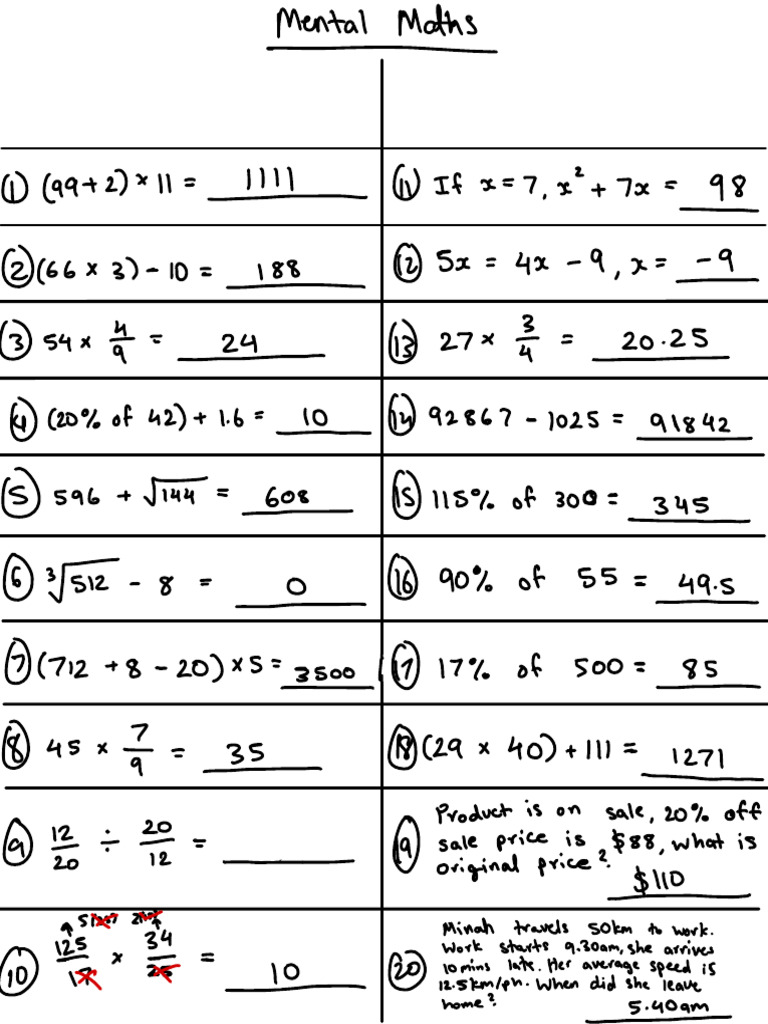 Mental Maths
① (99+2) × 11 = 1111
② (66 × 3) - 10 = 188
③ 54 × 4/9 = 24
④ (20% of 42) + 1.6 = 10
⑤ 596 + √144 = 608
⑥ ∛512 - 8 = 0
⑦ (712 + 8 - 20) × 5 = 3500
⑧ 45 × 7/9 = 35
⑨ 12/20 ÷ 20/12 =
⑩ 125/17 × 34/25 = 10
⑪ If x = 7, x² + 7x = 98
⑫ 5x = 4x - 9, x = -9
⑬ 27 × 3/4 = 20.25
⑭ 92867 - 1025 = 91842
⑮ 115% of 300 = 345
⑯ 90% of 55 = 49.5
⑰ 17% of 500 = 85
⑱ (29 × 40) + 111 = 1271
⑲ Product is on sale, 20% off
sale price is $88, what is
original price? $110
⑳ Minah travels 50km to work.
Work starts 9.30am, she arrives
10 mins late. Her average speed is
12.5km/ph. When did she leave
home? 5.40am